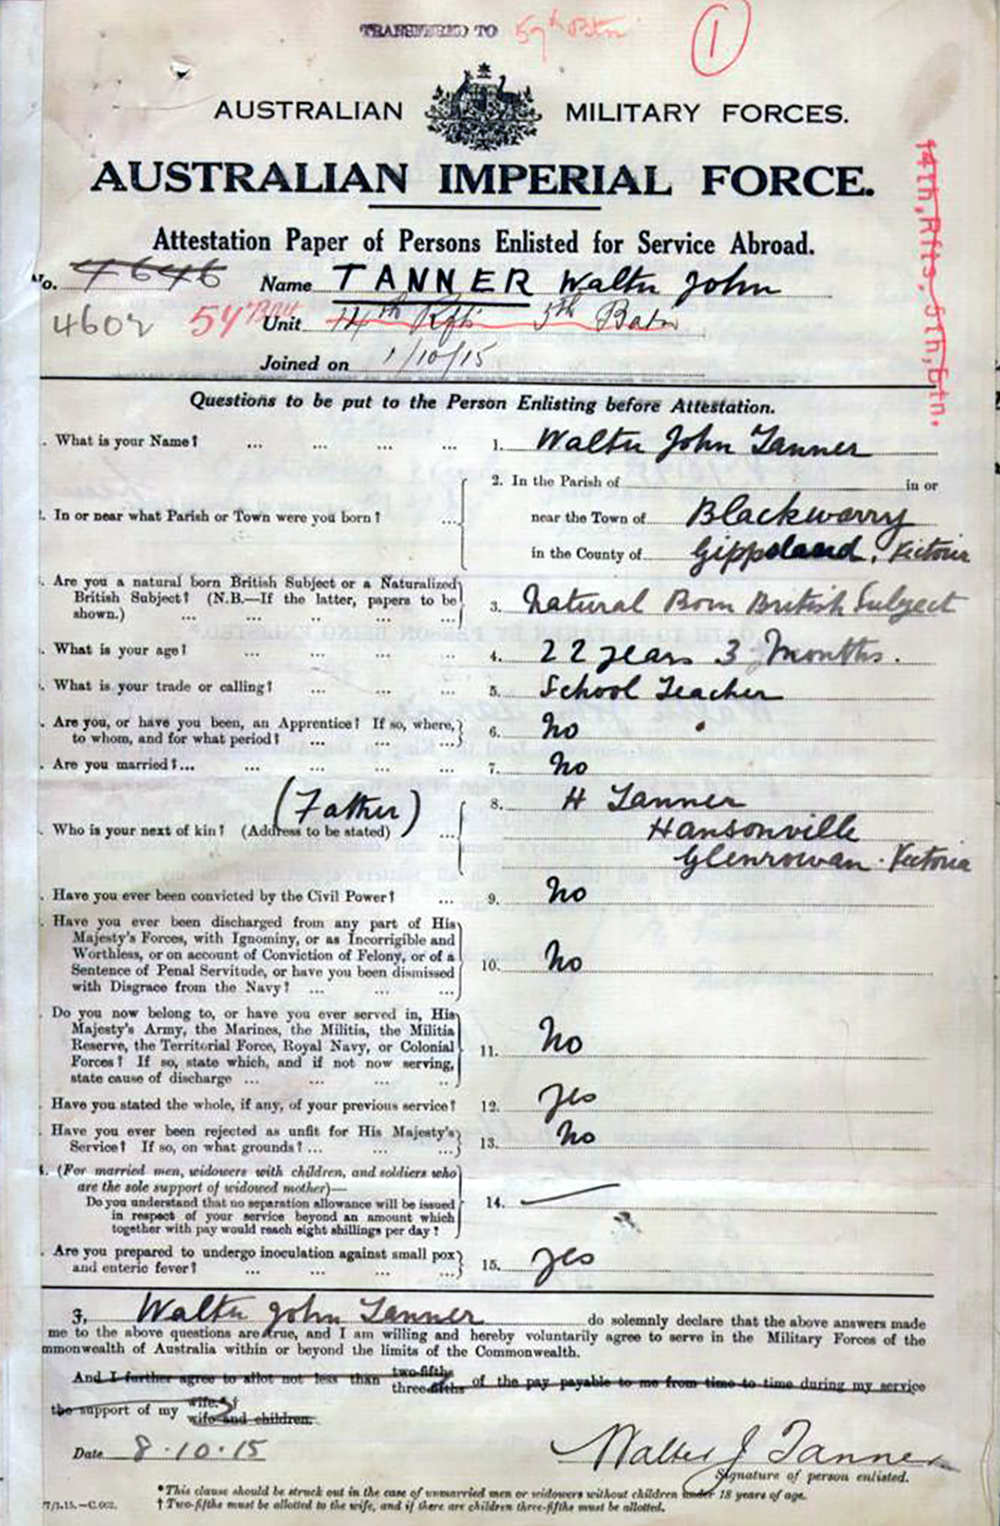 TRANSFERRED TO 57th Btn 1
AUSTRALIAN MILITARY FORCES.
AUSTRALIAN IMPERIAL FORCE.
14th, Rfts, 5th, Btn.
Attestation Paper of Persons Enlisted for Service Abroad.
No. 4646 Name TANNER Walter John
4602 Unit 14th Rfts 5th Batn
Joined on 1/10/15
Questions to be put to the Person Enlisting before Attestation.
. What is your Name? ... ... ... ... 1. Walter John Tanner
2. In the Parish of in or
. In or near what Parish or Town were you born? ... near the Town of Blackwarry
in the County of Gippsland, Victoria
. Are you a natural born British Subject or a Naturalized
British Subject? (N.B.—If the latter, papers to be
shown.) ... ... .. ... ... 3. Natural Born British Subject
. What is your age? ... ... ... ... 4. 22 years 3 Months.
. What is your trade or calling? ... ... ... 5. School Teacher
. Are you, or have you been, an Apprentice? If so, where,
to whom, and for what period? ... ... ... 6. No
. Are you married?... ... ... ... ... 7. No
(Father) 8. H Tanner
. Who is your next of kin? (Address to be stated) ... Hansonville
Glenrowan. Victoria
. Have you ever been convicted by the Civil Power? ... 9. No
. Have you ever been discharged from any part of His
Majesty's Forces, with Ignominy, or as Incorrigible and
Worthless, or on account of Conviction of Felony, or of a
Sentence of Penal Servitude, or have you been dismissed
with Disgrace from the Navy? ... ... ... 10. No
. Do you now belong to, or have you ever served in, His
Majesty's Army, the Marines, the Militia, the Militia
Reserve, the Territorial Force, Royal Navy, or Colonial
Forces? If so, state which, and if not now serving,
state cause of discharge ... ... ... .. 11. No
. Have you stated the whole, if any, of your previous service? 12. Yes
. Have you ever been rejected as unfit for His Majesty's
Service? If so, on what grounds? ... ... ... 13. No
. (For married men, widowers with children, and soldiers who
are the sole support of widowed mother)—
Do you understand that no separation allowance will be issued
in respect of your service beyond an amount which
together with pay would reach eight shillings per day? 14. —
. Are you prepared to undergo inoculation against small pox
and enteric fever? ... ... ... ... 15. Yes
I, Walter John Tanner do solemnly declare that the above answers made
me to the above questions are true, and I am willing and hereby voluntarily agree to serve in the Military Forces of the
mmonwealth of Australia within or beyond the limits of the Commonwealth.
And I further agree to allot not less than two-fifths three-fifths of the pay payable to me from time to time during my service
the support of my wife. wife and children.
Date 8.10.15 Walter J Tanner
Signature of person enlisted.
*This clause should be struck out in the case of unmarried men or widowers without children under 18 years of age.
† Two-fifths must be allotted to the wife, and if there are children three-fifths must be allotted.